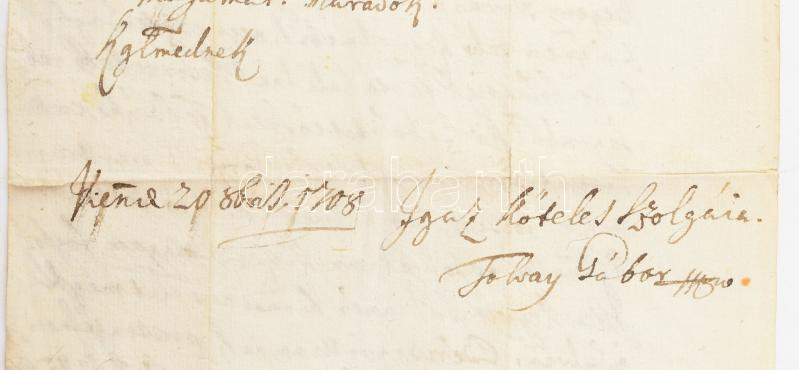 maradok.
Kglmednek
Vienne 20 8bris 1708
Igaz köteles Szolgáia.
Tolvay Gábor
darabanth